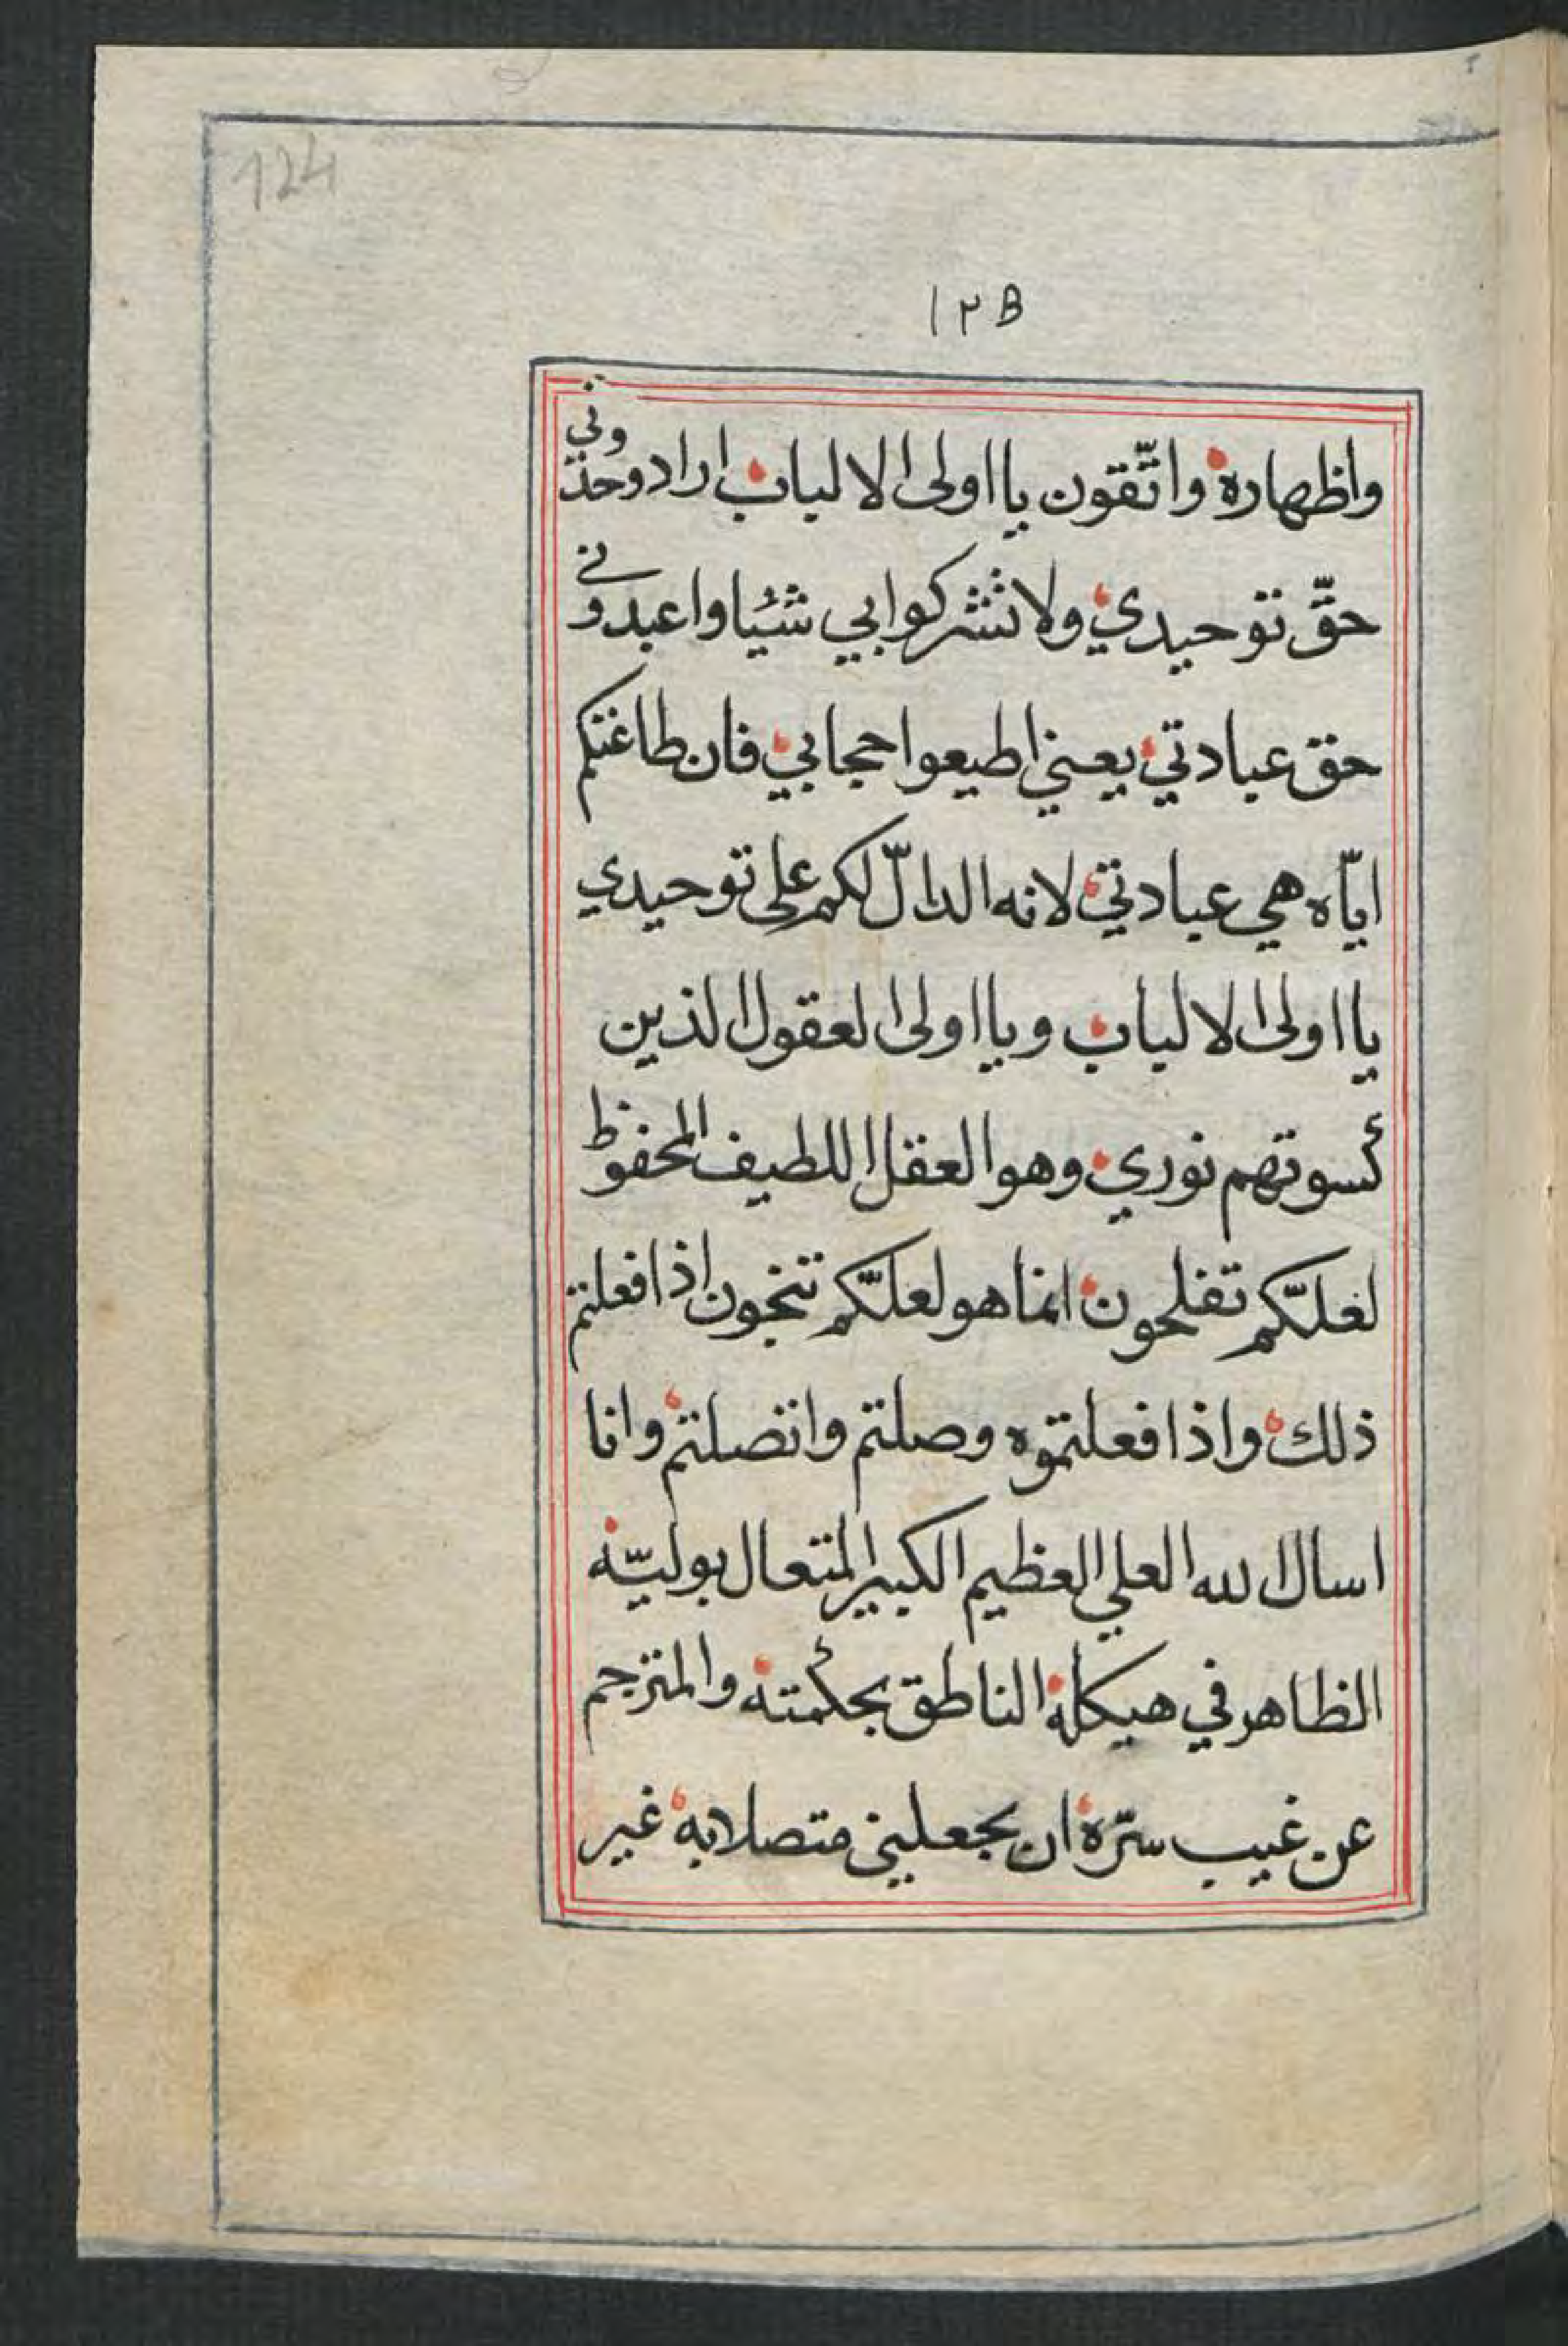 124
١٢٥
واظهاره واتّقون يا اولى الالباب اراد وحدوني
حقّ توحيدي ولا تشركوا بي شئيا واعبدوني
حق عبادتي يعني اطيعوا حجابي فان طاعتكم
ايّاه هي عبادتي لانه الدالّ لكم على توحيدي
يا اولى الالباب ويا اولى العقول الذين
كسوتهم نوري وهو العقل اللطيف المحفوظ
لعلّكم تفلحون انما هو لعلّكم تنجون اذا فعلتم
ذلك واذا فعلتموه وصلتم واتصلتم وانا
اسال الله العلي العظيم الكبير المتعال بوليّه
الظاهر في هيكله الناطق بحكمته والمترجم
عن غيب سرّه ان يجعلني متصلا به غير